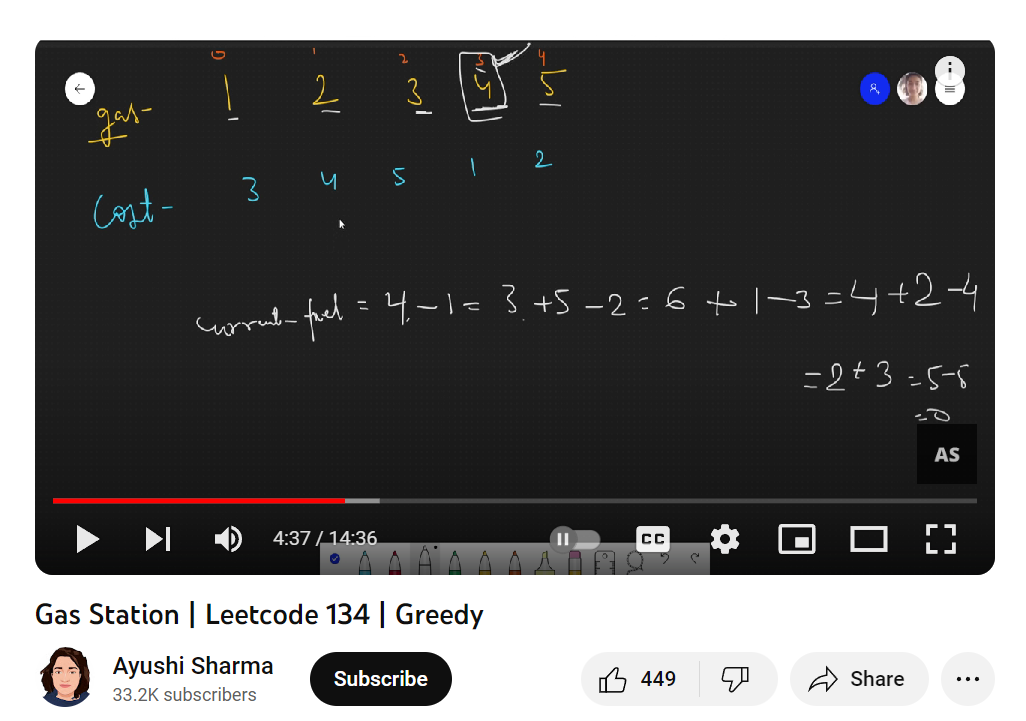 0 1 2 3 4
gas- 1 2 3 4 5
Cost- 3 4 5 1 2
current-fuel = 4 - 1 = 3 + 5 - 2 = 6 + 1 - 3 = 4 + 2 - 4
= 2 + 3 = 5-5
= 0
AS
4:37 / 14:36
CC
Gas Station | Leetcode 134 | Greedy
Ayushi Sharma
33.2K subscribers
Subscribe
449
Share